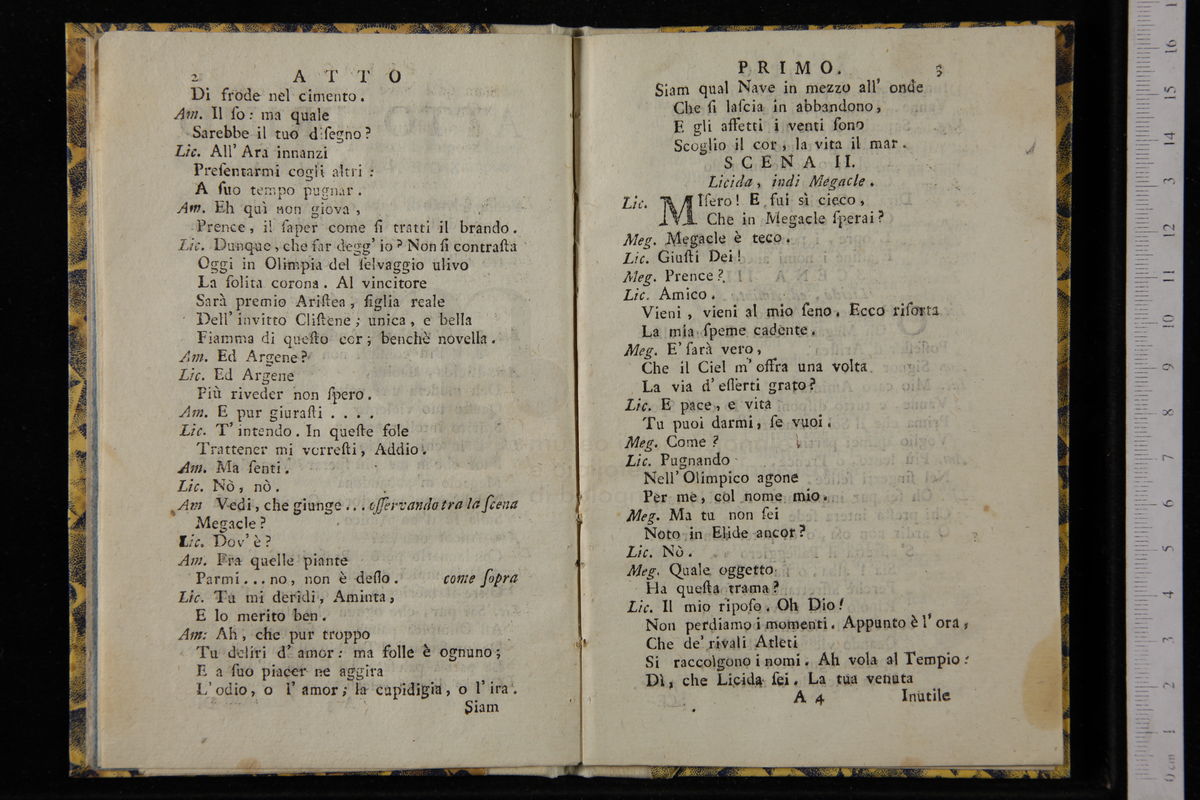 2 ATTO
Di frode nel cimento.
Am. Il ſo: ma quale
Sarebbe il tuo diſegno?
Lic. All' Ara innanzi
Preſentarmi cogli altri:
A ſuo tempo pugnar.
Am. Eh quì non giova,
Prence, il ſaper come ſi tratti il brando.
Lic. Dunque, che far degg' io? Non ſi contraſta
Oggi in Olimpia del ſelvaggio ulivo
La ſolita corona. Al vincitore
Sarà premio Ariſtea, figlia reale
Dell' invitto Cliſtene; unica, e bella
Fiamma di queſto cor; benchè novella.
Am. Ed Argene?
Lic. Ed Argene
Più riveder non ſpero.
Am. E pur giuraſti . . . .
Lic. T' intendo. In queſte fole
Trattener mi vorreſti, Addio.
Am. Ma ſenti.
Lic. Nò, nò.
Am Vedi, che giunge ... oſſervando tra la ſcena
Megacle?
Lic. Dov' è?
Am. Fra quelle piante
Parmi... no, non è deſſo. come ſopra
Lic. Tu mi deridi, Aminta,
E lo merito ben.
Am: Ah, che pur troppo
Tu deliri d' amor: ma folle è ognuno;
E a ſuo piacer ne aggira
L' odio, o l' amor; la cupidigia, o l' ira.
Siam
PRIMO. 3
Siam qual Nave in mezzo all' onde
Che ſi laſcia in abbandono,
E gli affetti i venti ſono
Scoglio il cor, la vita il mar.
SCENA II.
Licida, indi Megacle.
Lic. MIſero! E fui sì cieco,
Che in Megacle ſperai?
Meg. Megacle è teco.
Lic. Giuſti Dei!
Meg. Prence?
Lic. Amico.
Vieni, vieni al mio ſeno. Ecco riſorta
La mia ſpeme cadente.
Meg. E' ſarà vero,
Che il Ciel m' offra una volta
La via d' eſſerti grato?
Lic. E pace, e vita
Tu puoi darmi, ſe vuoi.
Meg. Come?
Lic. Pugnando
Nell' Olimpico agone
Per me, col nome mio.
Meg. Ma tu non ſei
Noto in Elide ancor?
Lic. Nò.
Meg. Quale oggetto
Ha queſta trama?
Lic. Il mio ripoſo. Oh Dio!
Non perdiamo i momenti. Appunto è l' ora,
Che de' rivali Atleti
Si raccolgono i nomi. Ah vola al Tempio:
Dì, che Licida ſei. La tua venuta
A 4 Inutile
0 cm 1 2 3 4 5 6 7 8 9 10 11 12 13 14 15 16